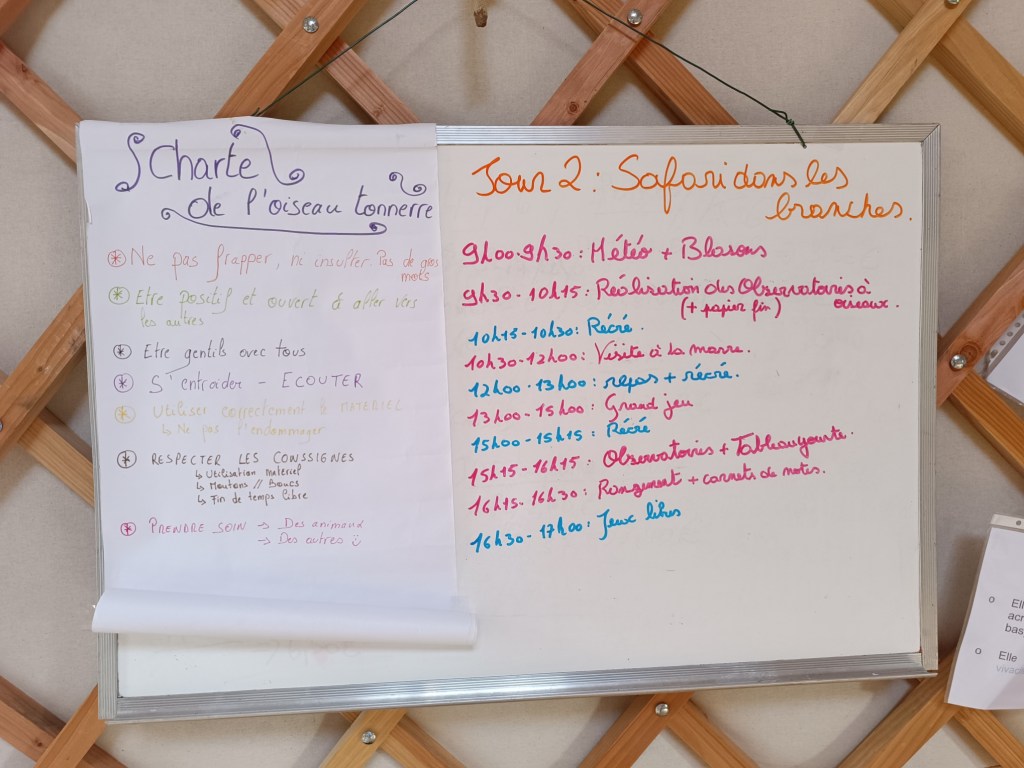 Charte
de l'oiseau tonnerre
Ne pas frapper, ni insulter. Pas de gros
mots
Etre positif et ouvert & aller vers
les autres
Etre gentils avec tous
S'entraider - ECOUTER
Utiliser correctement le MATERIEL
↳ Ne pas l'endommager
RESPECTER LES CONSSIGNES
↳ Utilisation matériel
↳ Moutons // Boucs
↳ Fin de temps libre
PRENDRE SOIN → Des animaux
→ Des autres
Jour 2 : Safari dans les
branches.
9h00-9h30 : Météo + Blasons
9h30-10h15 : Réalisation des Observatoires à
(+ papier fin) oiseaux.
10h15-10h30 : Récré.
10h30-12h00 : Visite à la marre.
12h00-13h00 : repas + récré.
13h00-15h00 : Grand jeu
15h00-15h15 : Récré
15h15-16h15 : Observatoires + Tableau yourte.
16h15-16h30 : Rangement + carnets de notes.
16h30-17h00 : Jeux libres
Ell
acr
bas
Elle